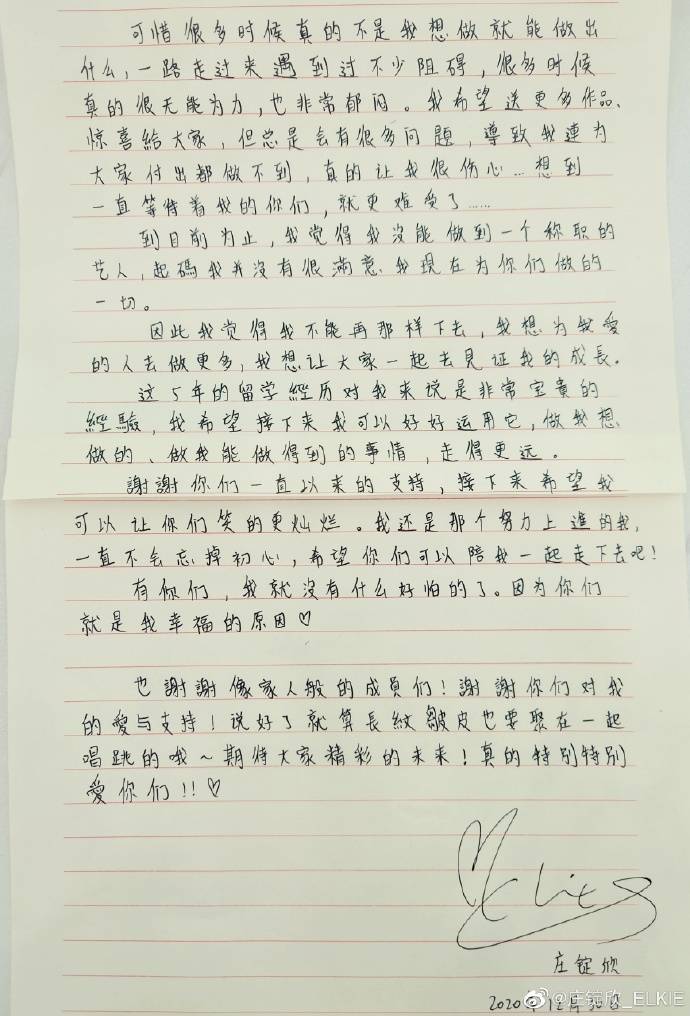 可惜很多时候真的不是我想做就能做出
什么,一路走过来遇到过不少阻碍,很多时候
真的很无能为力,也非常郁闷。我希望送更多作品、
惊喜給大家,但总是会有很多问題,導致我連为
大家付出都做不到,真的让我很伤心...想到
一直等待着我的你们,就更难受了......
到目前为止,我觉得我没能做到一个称职的
艺人,起碼我并没有很滿意我現在为你们做的
一切。
因此我觉得我不能再那样下去,我想为我爱
的人去做更多,我想让大家一起去見证我的成長。
这5年的留学經历对我来说是非常宝貴的
經驗,我希望接下来我可以好好运用它,做我想
做的、做我能做得到的事情,走得更远。
謝謝你们一直以来的支持,接下来希望我
可以让你们笑的更灿烂。我还是那个努力上進的我,
一直不会忘掉初心,希望你们可以陪我一起走下去吧!
有你们,我就没有什么好怕的了。因为你们
就是我幸福的原因♡
也謝謝像家人般的成員们!謝謝你们对我
的愛与支持!说好了就算長紋皺皮也要聚在一起
唱跳的哦~期待大家精彩的未来!真的特别特别
愛你们!!♡
Elkie
庄錠欣
2020年12月30日
@庄锭欣_ELKIE